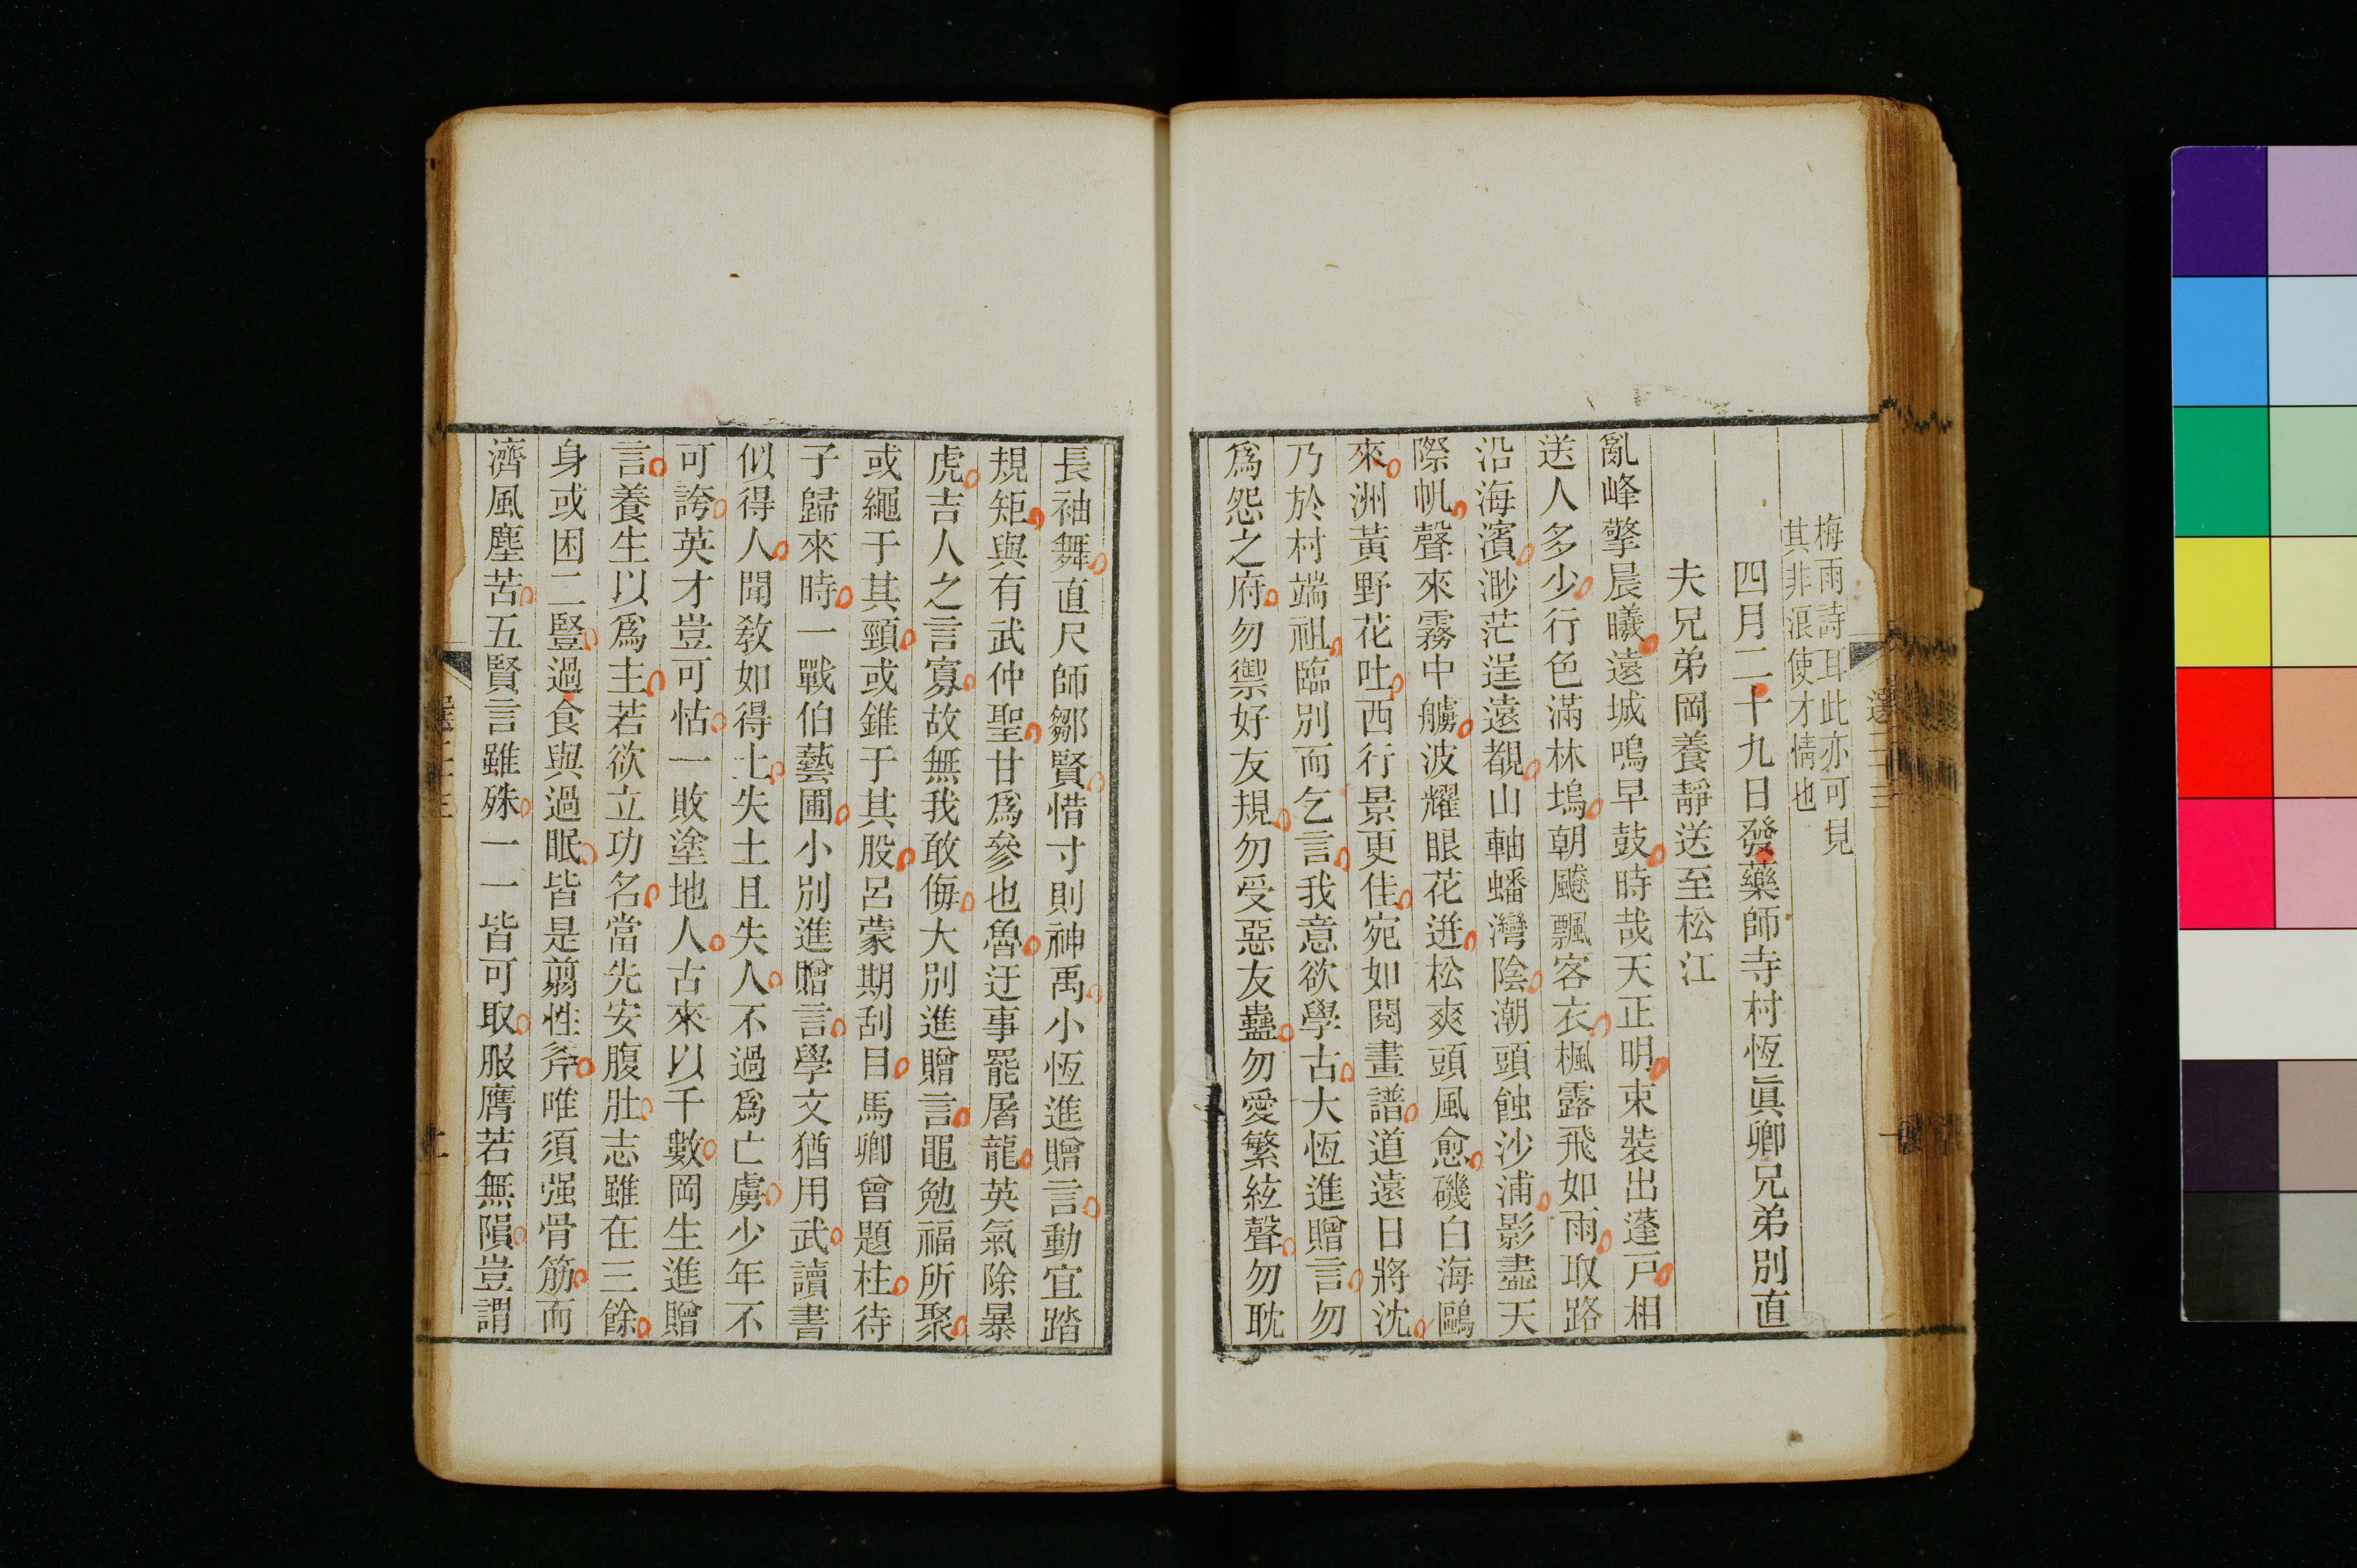 梅雨詩耳此亦可見
其非浪使才情也
四月二十九日發藥師寺村恆眞卿兄弟別直
夫兄弟岡養靜送至松江
亂峰擎晨曦遠城鳴早鼓時哉天正明束裝出蓬戸相
送人多少行色滿林塢朝颸飄客衣楓露飛如雨取路
沿海濱渺茫逞遠覩山軸蟠灣陰潮頭蝕沙浦影盡天
際帆聲來霧中艫波耀眼花迸松爽頭風愈磯白海鷗
來洲黃野花吐西行景更佳宛如閱畫譜道遠日將沈
乃於村端祖臨別而乞言我意欲學古大恆進贈言勿
爲怨之府勿禦好友規勿受惡友蠱勿愛繁絃聲勿耽
長袖舞直尺師鄒賢惜寸則神禹小恆進贈言動宜踏
規矩與有武仲聖甘爲參也魯迂事罷屠龍英氣除暴
虎吉人之言寡故無我敢侮大別進贈言黽勉福所聚
或繩于其頸或錐于其股呂蒙期刮目馬卿曾題柱待
子歸來時一戰伯藝圃小別進贈言學文猶用武讀書
似得人聞敎如得土失土且失人不過爲亡虜少年不
可誇英才豈可怙一敗塗地人古來以千數岡生進贈
言養生以爲主若欲立功名當先安腹肚志雖在三餘
身或困二豎過食與過眠皆是翦性斧唯須强骨筋而
濟風塵苦五賢言雖殊一一皆可取服膺若無隕豈謂